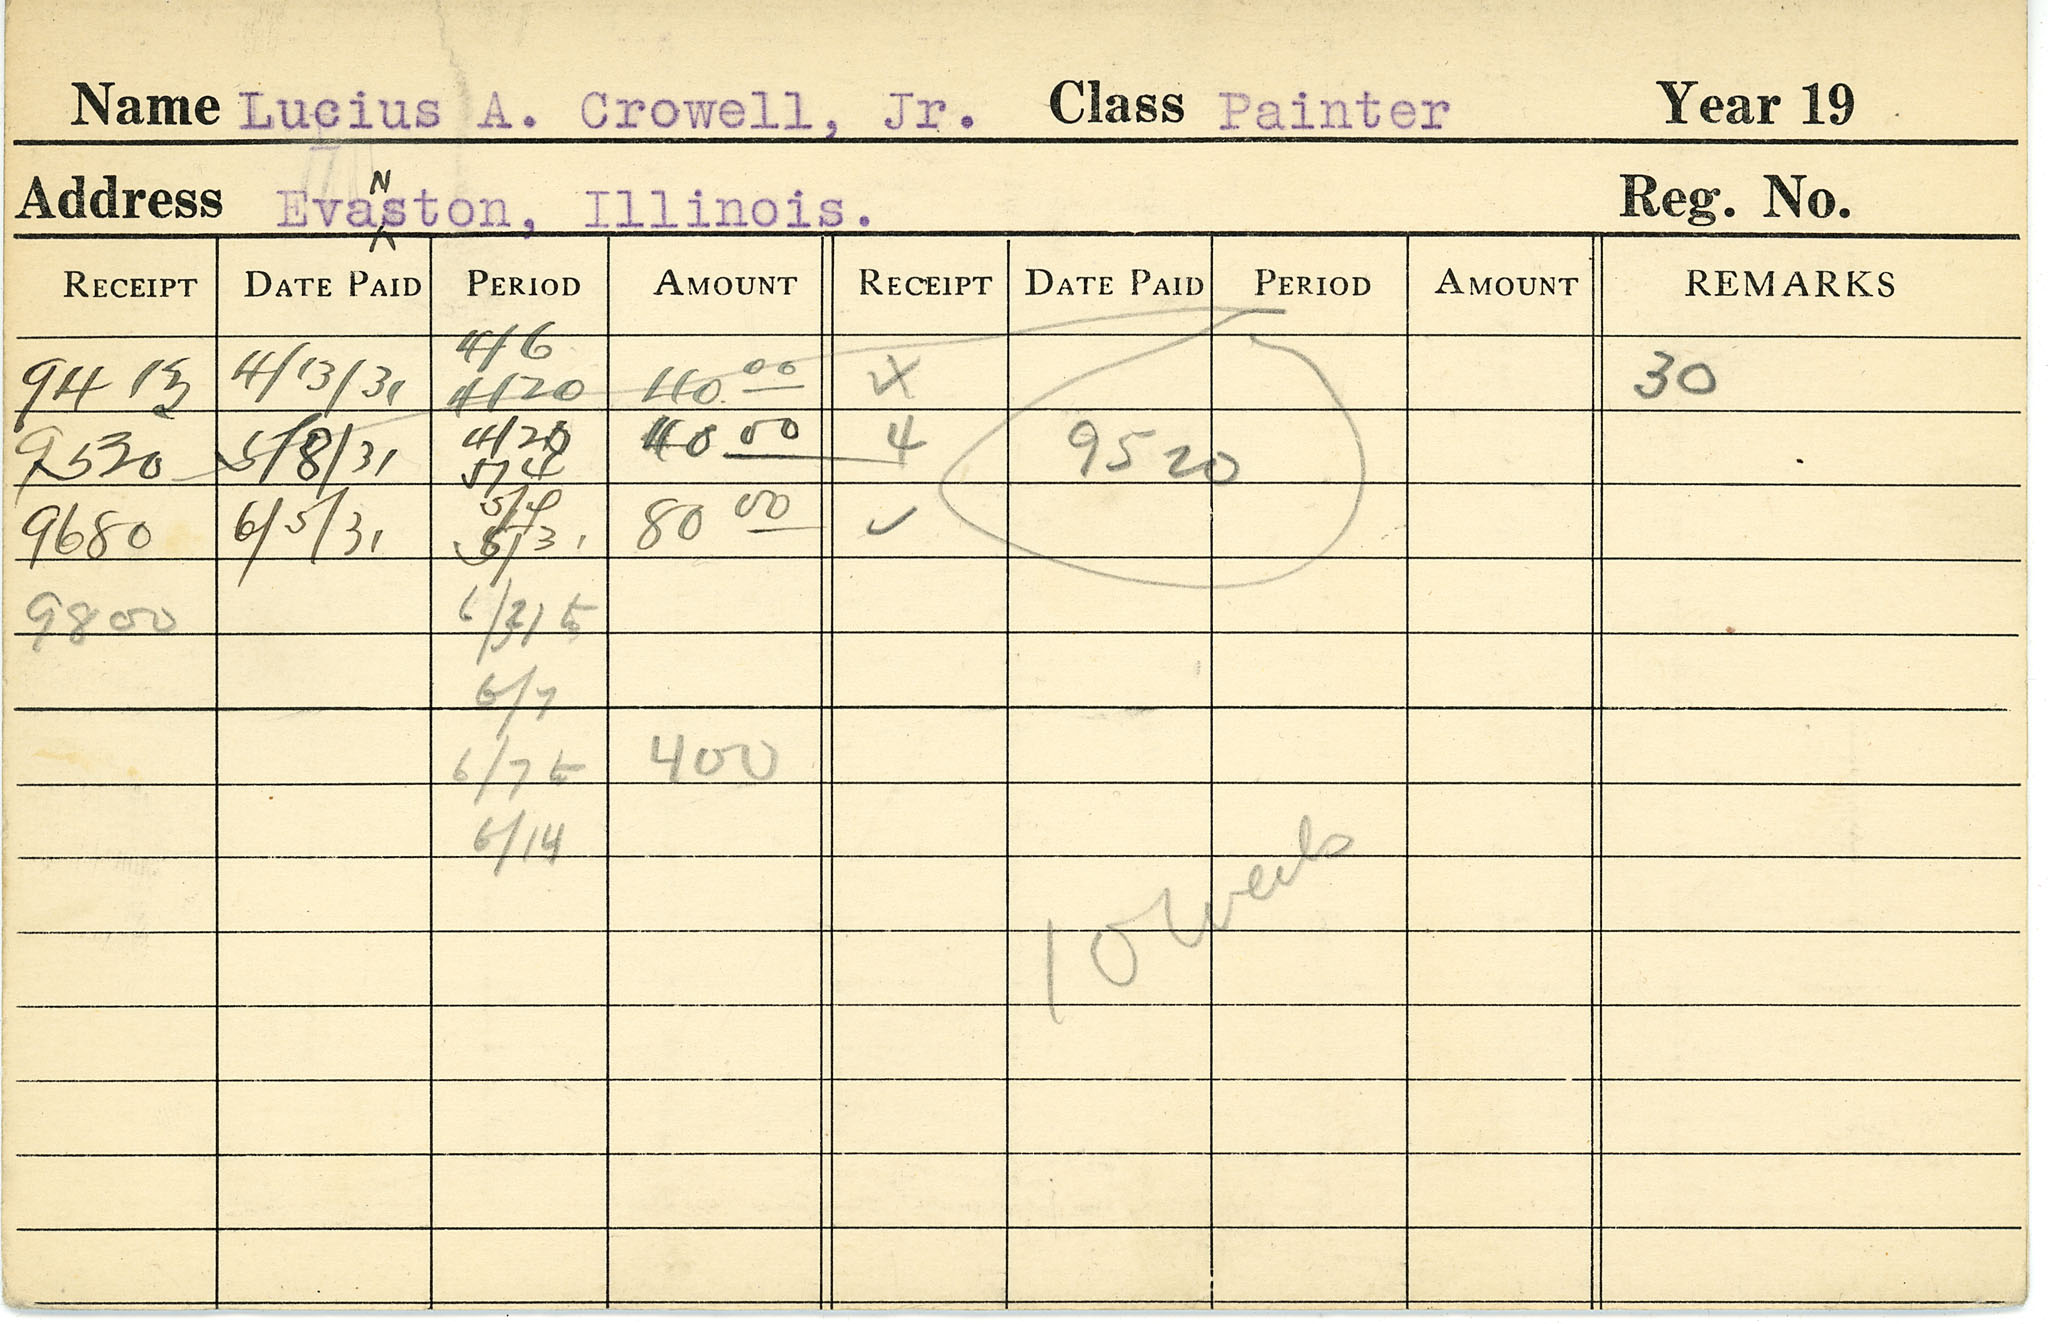 Name Lucius A. Crowell, Jr. Class Painter Year 19
N
Address Evaston, Illinois. Reg. No.
RECEIPT DATE PAID PERIOD AMOUNT RECEIPT DATE PAID PERIOD AMOUNT REMARKS
4/6
9415 4/13/31 4/20 40.00 X 30
9520 5/8/31 4/20 40 00 4 9520
5/4
9680 6/5/31 5/4 80 00 ✓
5/31
9800
6/7
6/7 to 400
6/14
10 Weeks